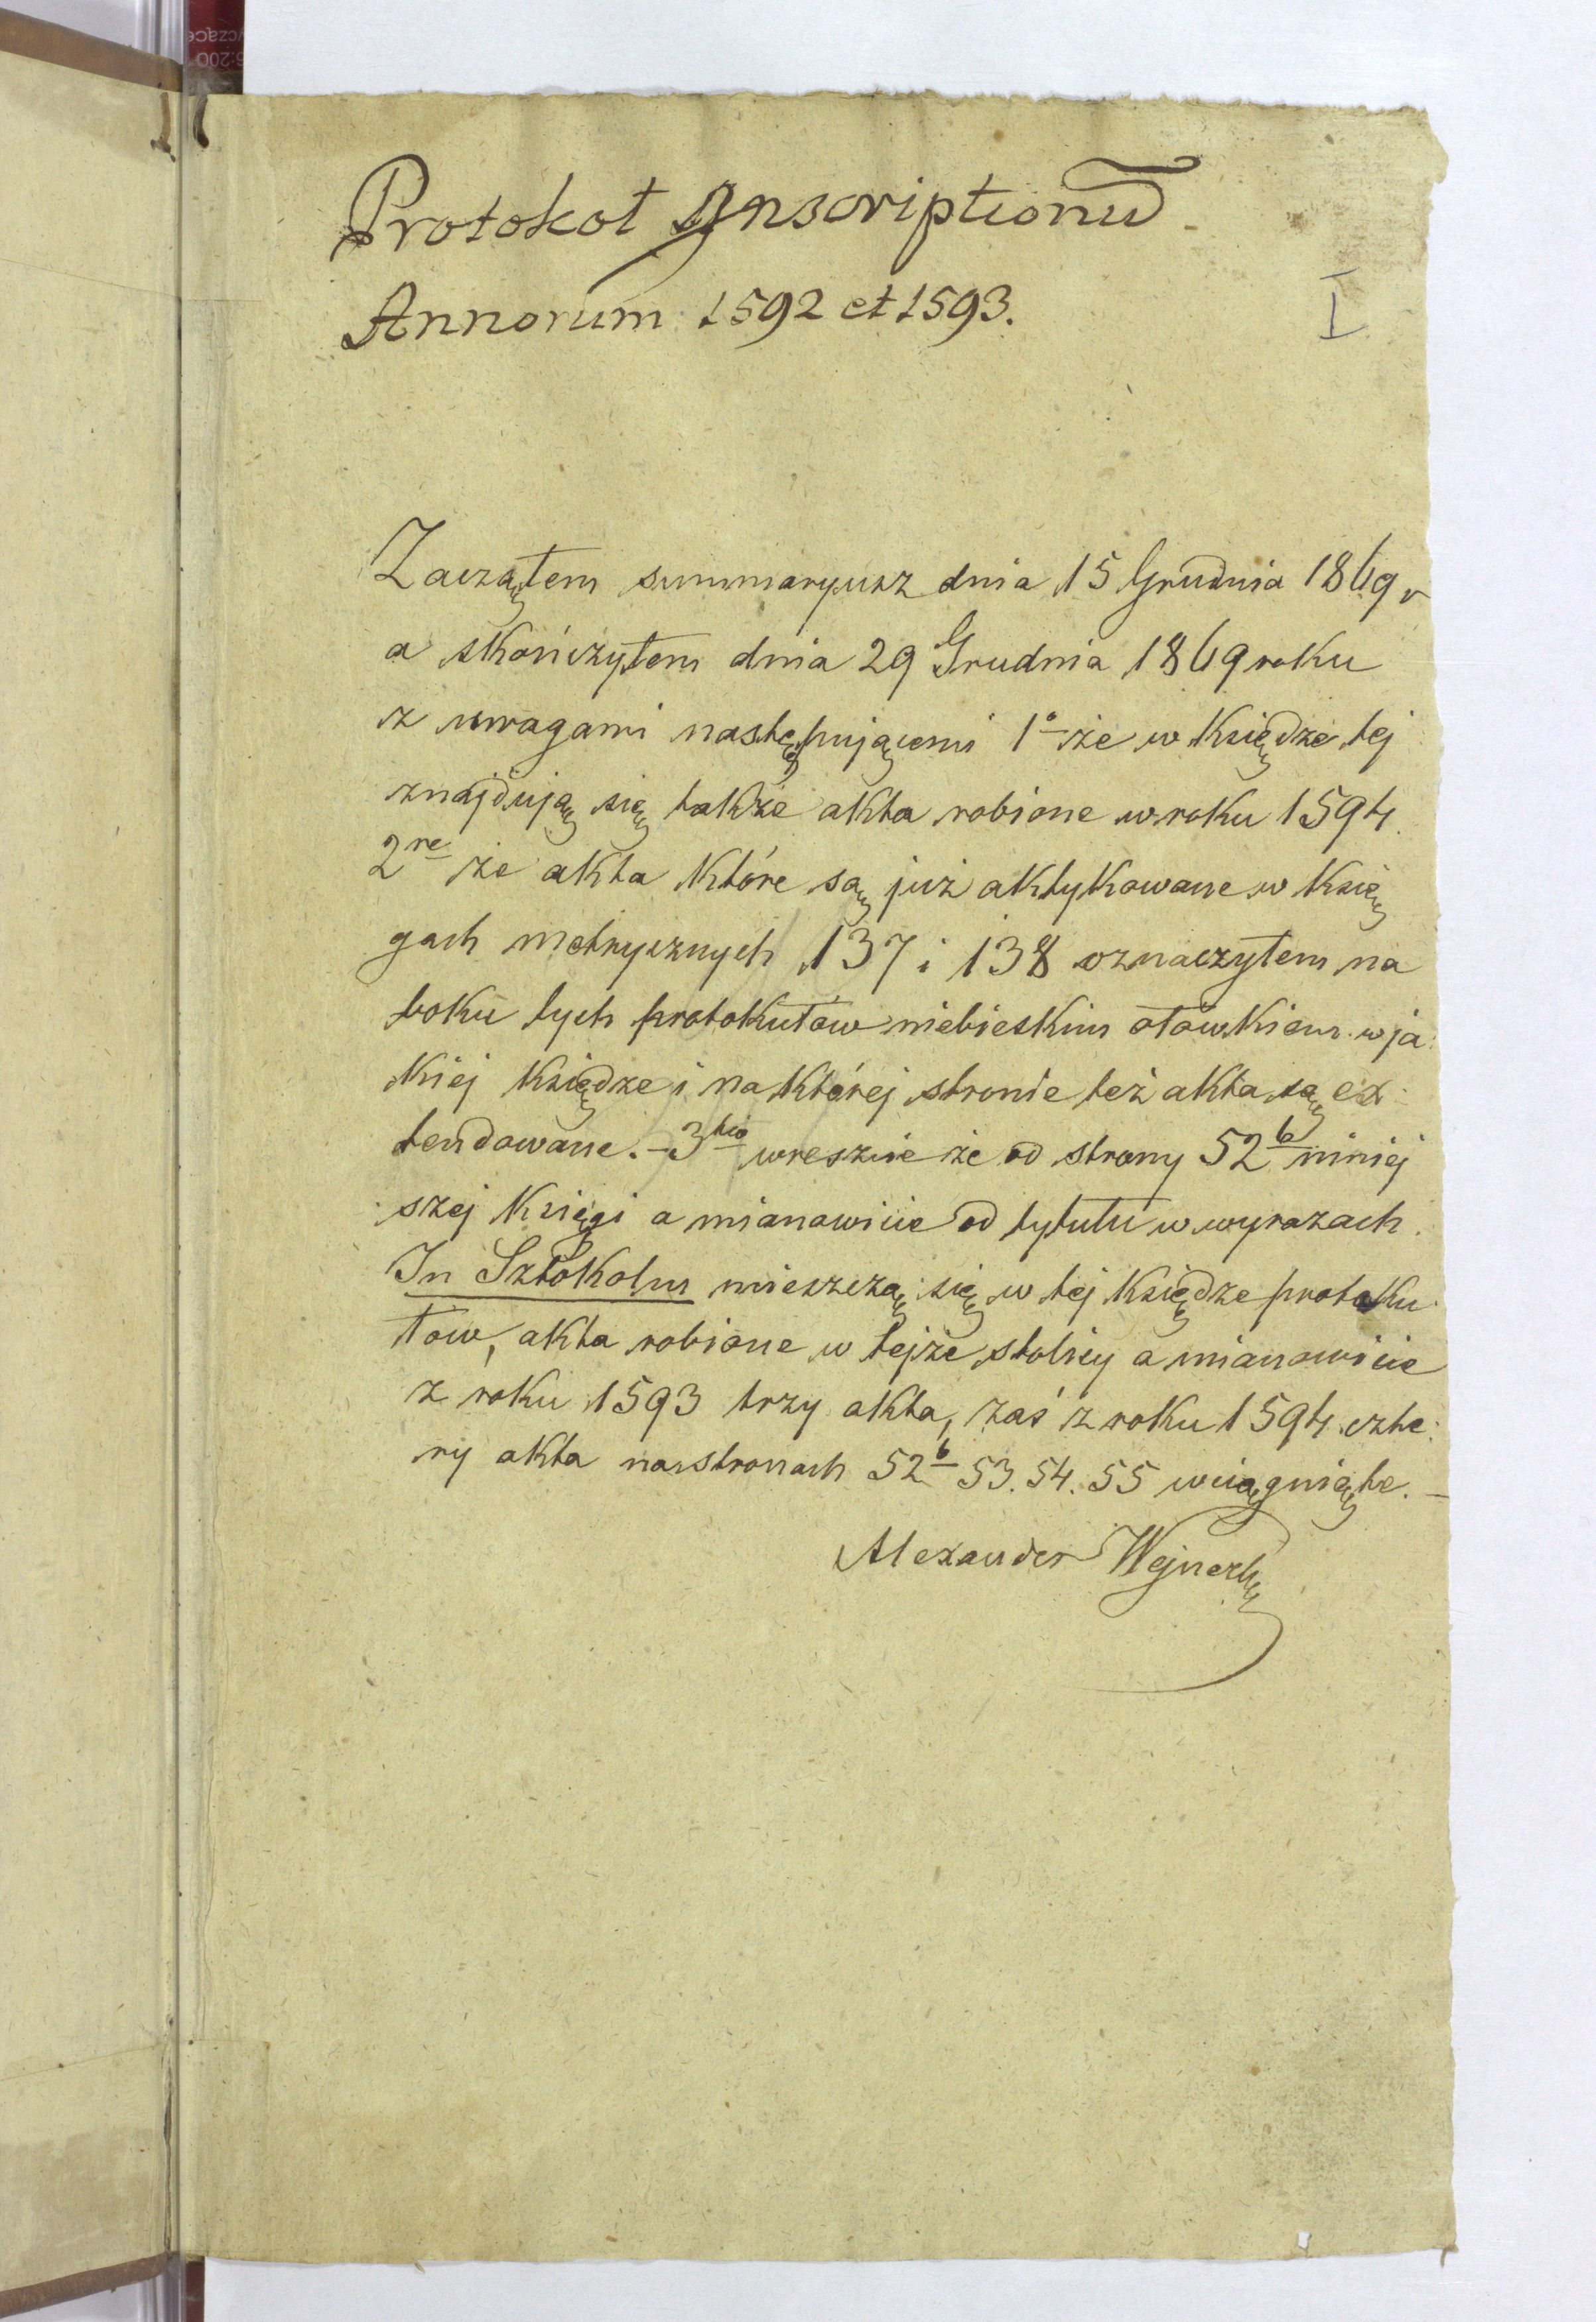 Protokoł Inscriptionū
Annorum 1592 et 1593.
I
Zacząłem summaryusz dnia 15 Grudnia 1869 r
a skończyłem dnia 29 Grudnia 1869 roku
z uwagami następującemi 1° że w księdze tej
znajdują się także akta robione w roku 1594.
2re że akta które są już aktykowane w księ
gach metrycznych 137 i 138 oznaczyłem na
boku tych protokułów niebieskim ołówkiem w ja:
kiej księdze i na której stronie też akta są ex:
tendowane. – 3tio wreszcie że od strony 52b niniej
szej księgi a mianowicie od tytułu w wyrazach
In Sztokolm mieszczą się w tej księdze protoku:
łów, akta robione w tejże stolicy a mianowicie
z roku 1593 trzy akta, zaś z roku 1594 czte:
ry akta na stronach 52b 53. 54. 55 wciągnięte. –
Alexander Wejnert